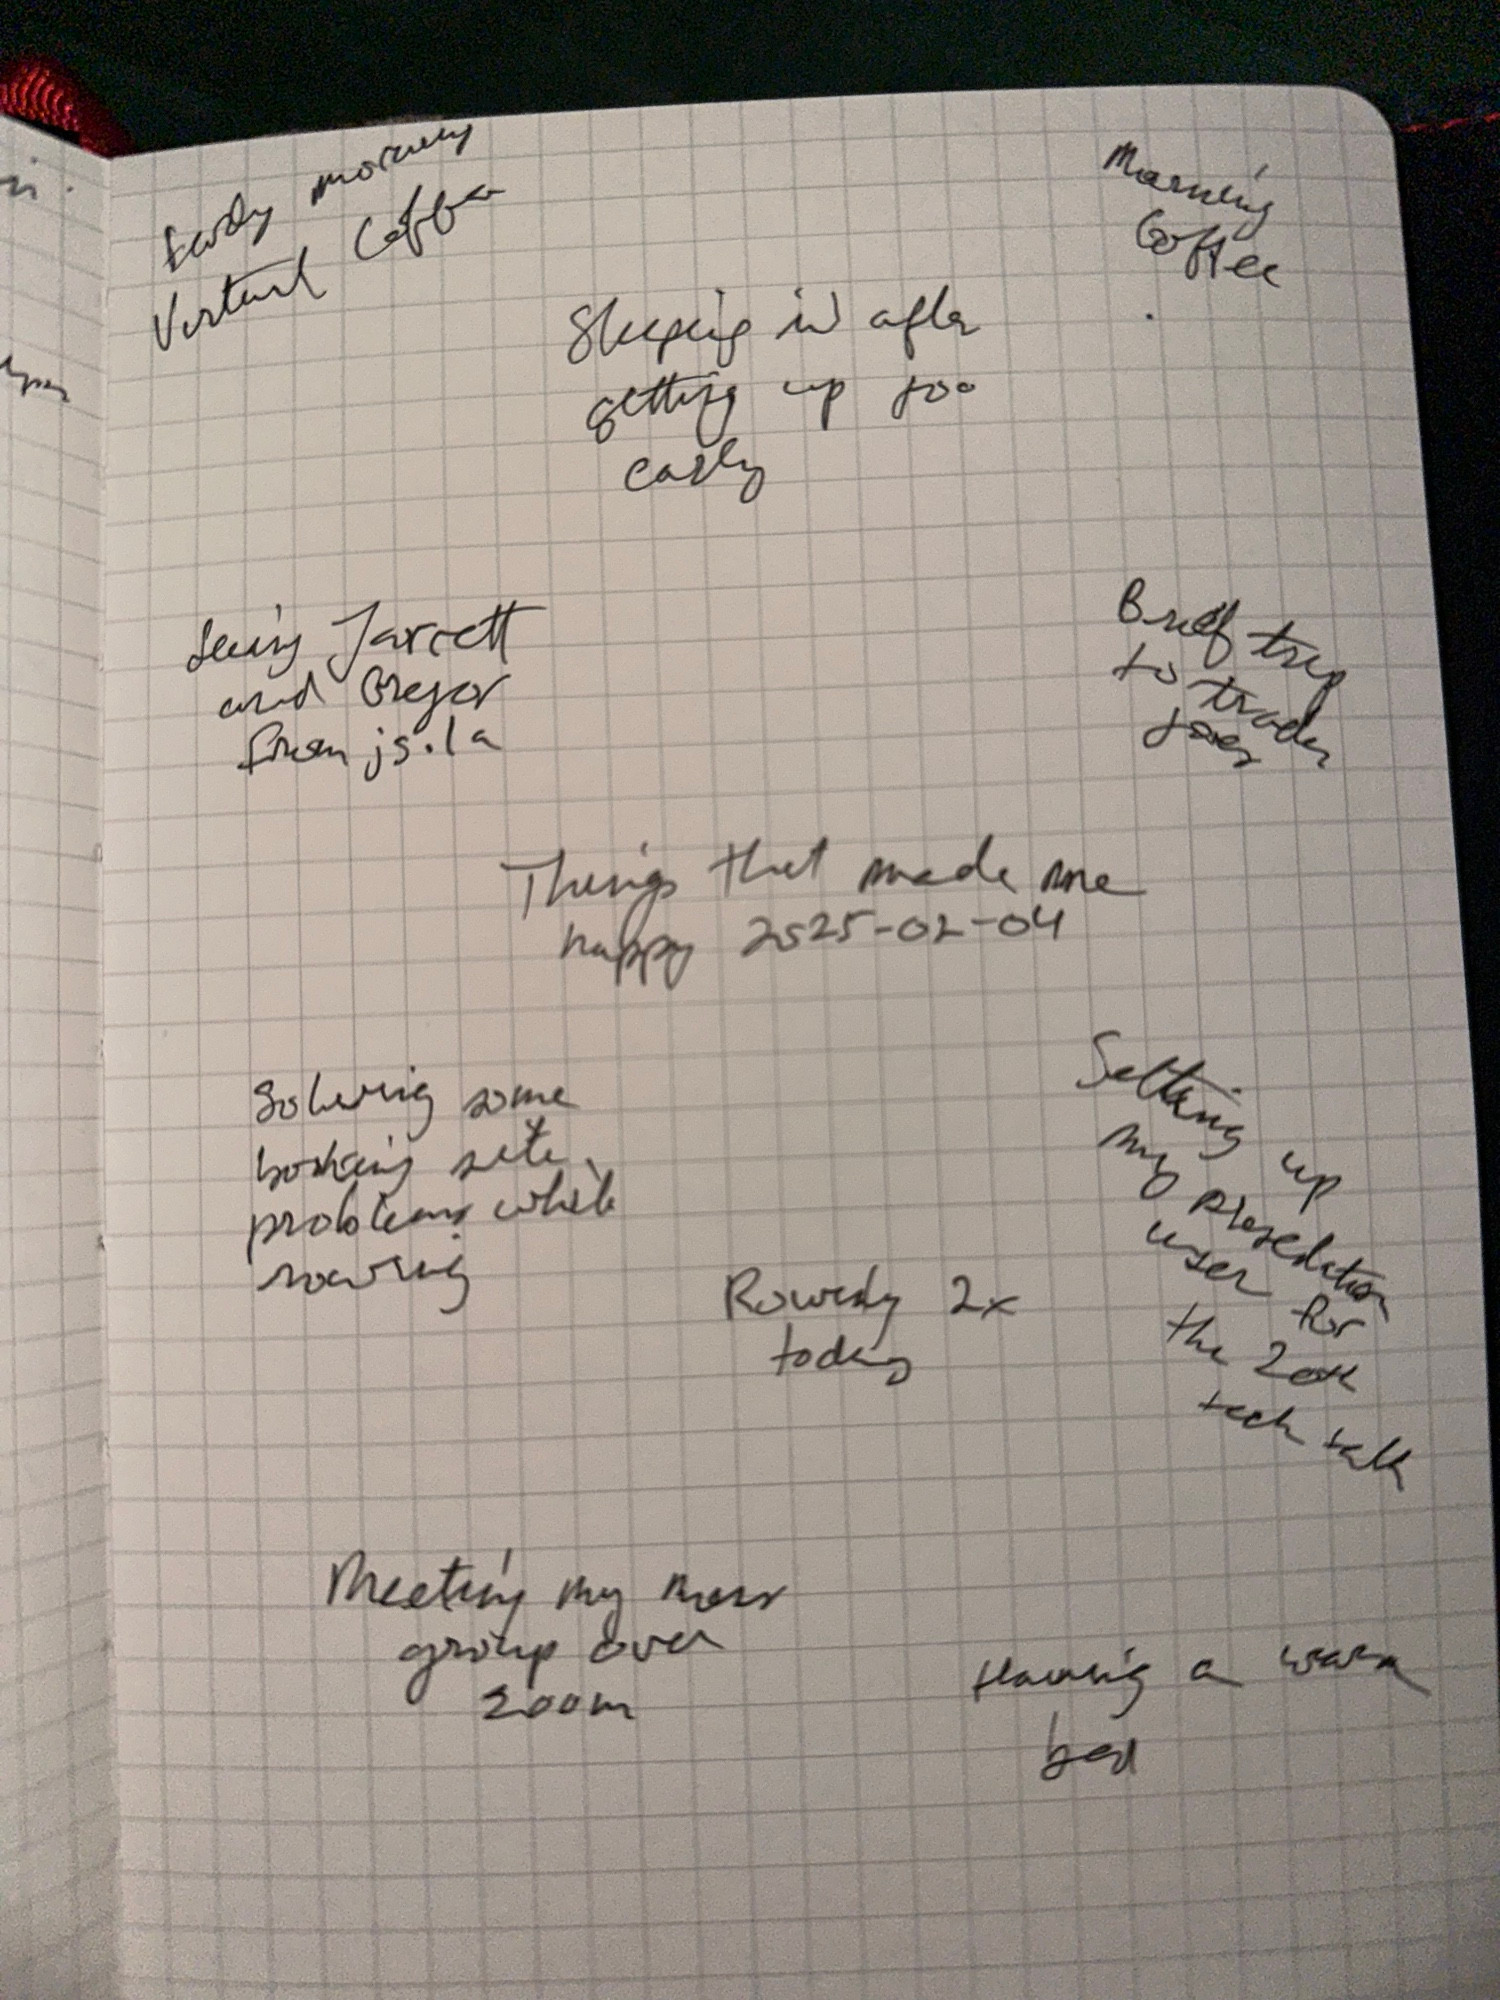 Early morning
Virtual Coffee
Morning
Coffee
Sleeping in after
getting up too
early
Seeing Jarrett
and Gregor
from js.la
Brief trip
to trader
joes
Things that made me
happy 2025-02-04
Solving some
booking site
problems while
rowing
Setting up
my presentation
user for
the 20th
tech talk
Rowing 2x
today
Meeting my
group over
zoom
Having a warm
bed